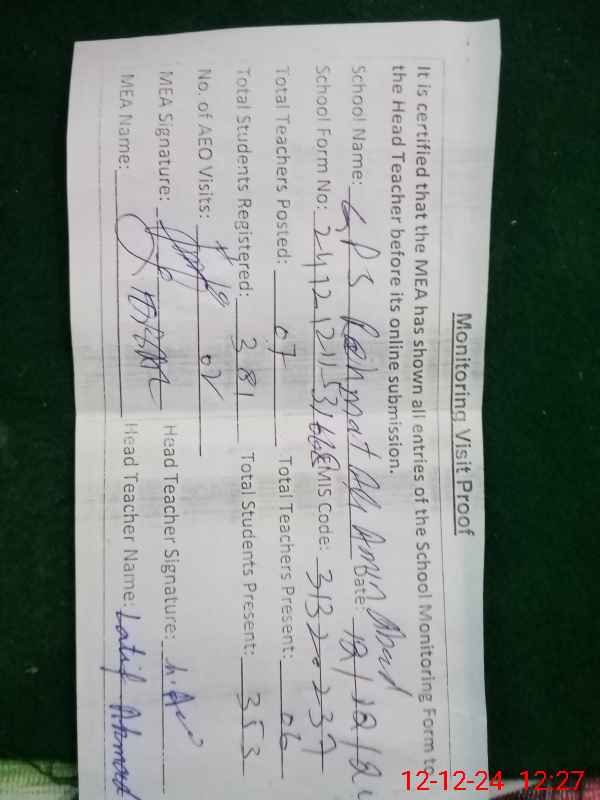 Monitoring Visit Proof
It is certified that the MEA has shown all entries of the School Monitoring Form to
the Head Teacher before its online submission.
School Name: GPS Rahmat Ali Amin Abad Date: 12/12/
School Form No: EMIS Code: 31320237
Total Teachers Posted: 07 Total Teachers Present: 06
Total Students Registered: 381 Total Students Present: 353
No. of AEO Visits: 02
MEA Signature: Head Teacher Signature:
MEA Name: Head Teacher Name: Latif Ahmed
12-12-24 12:27